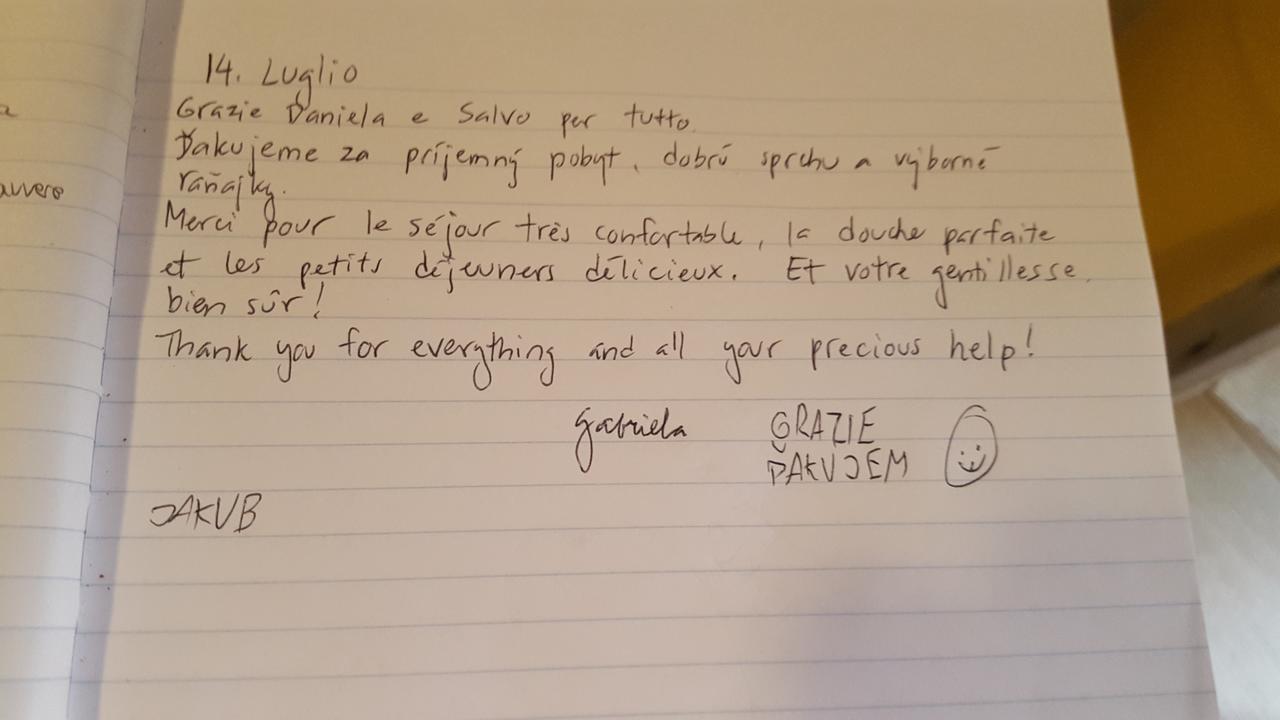 14. Luglio
Grazie Daniela e Salvo per tutto.
Ďakujeme za príjemný pobyt, dobrú sprchu a výborné
raňajky.
Merci pour le séjour très confortable, la douche parfaite
et les petits déjeuners délicieux. Et votre gentillesse
bien sûr!
Thank you for everything and all your precious help!
Gabriela GRAZIE
ĎAKUJEM
JAKUB
avvero